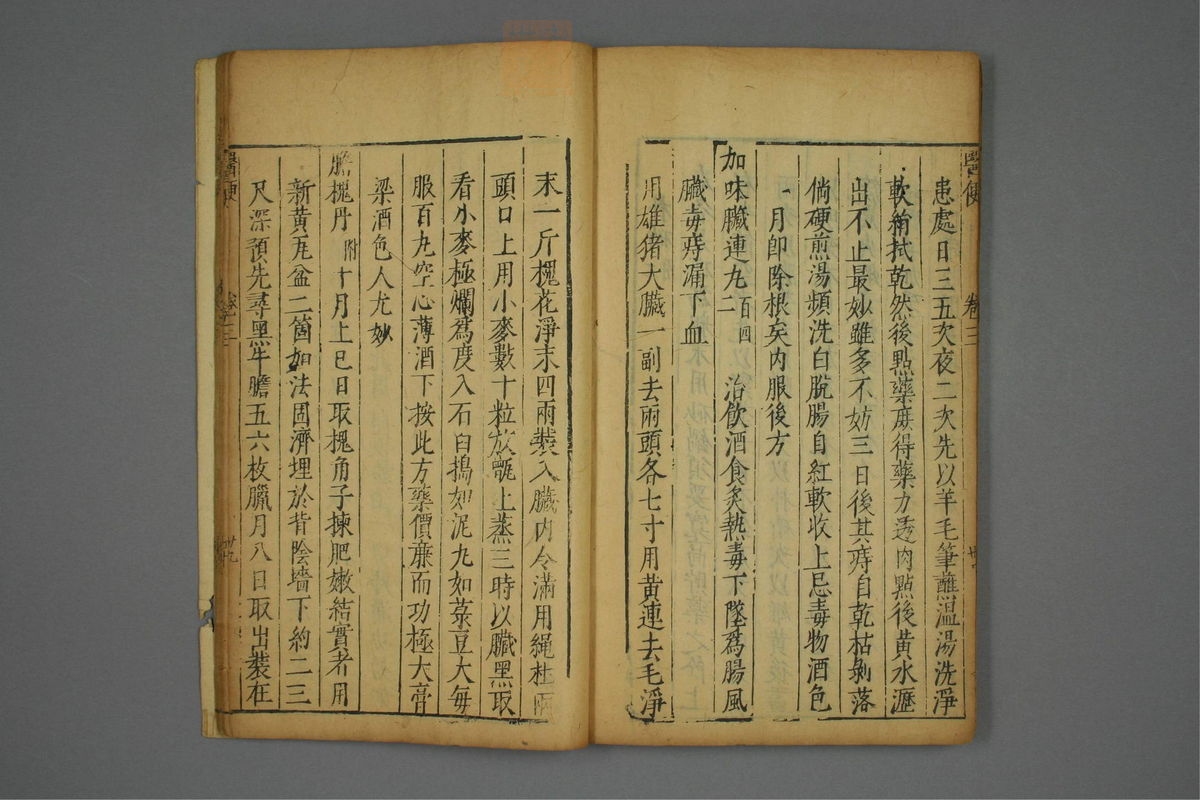 醫便
卷三
患處日三五次夜二次先以羊毛筆蘸溫湯洗淨
軟絹拭乾然後點藥庶得藥力透肉點後黃水瀝
出不止最妙雖多不妨三日後其痔自乾枯剝落
倘硬煎湯頻洗自脫腸自紅軟收上忌毒物酒色
一月卽除根矣內服後方
加味臟連丸二百四 治飲酒食炙熱毒下墜爲腸風
臟毒痔漏下血
用雄猪大臟一副去兩頭各七寸用黃連去毛淨
末一斤槐花淨末四兩裝入臟內令滿用繩杜兩
頭口上用小麥數十粒放甑上蒸三時以臟黑取
看小麥極爛爲度入石臼搗如泥丸如菉豆大每
服百丸空心薄酒下按此方藥價廉而功極大膏
梁酒色人尤妙
膽槐丹 附 十月上巳日取槐角子揀肥嫩結實者用
新黃瓦盆二箇如法固濟埋於背陰墻下約二三
尺深預先尋黑牛膽五六枚臘月八日取出裝在
醫便
卷三
廿九